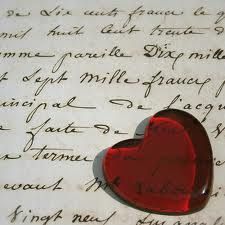 de Six cents francs le q
mis huit cent trente d
omme pareille Dix mille
t Sept mille francs
incipal de l'acqu
faite de
en termes a
evant Mr
Vingt neuf